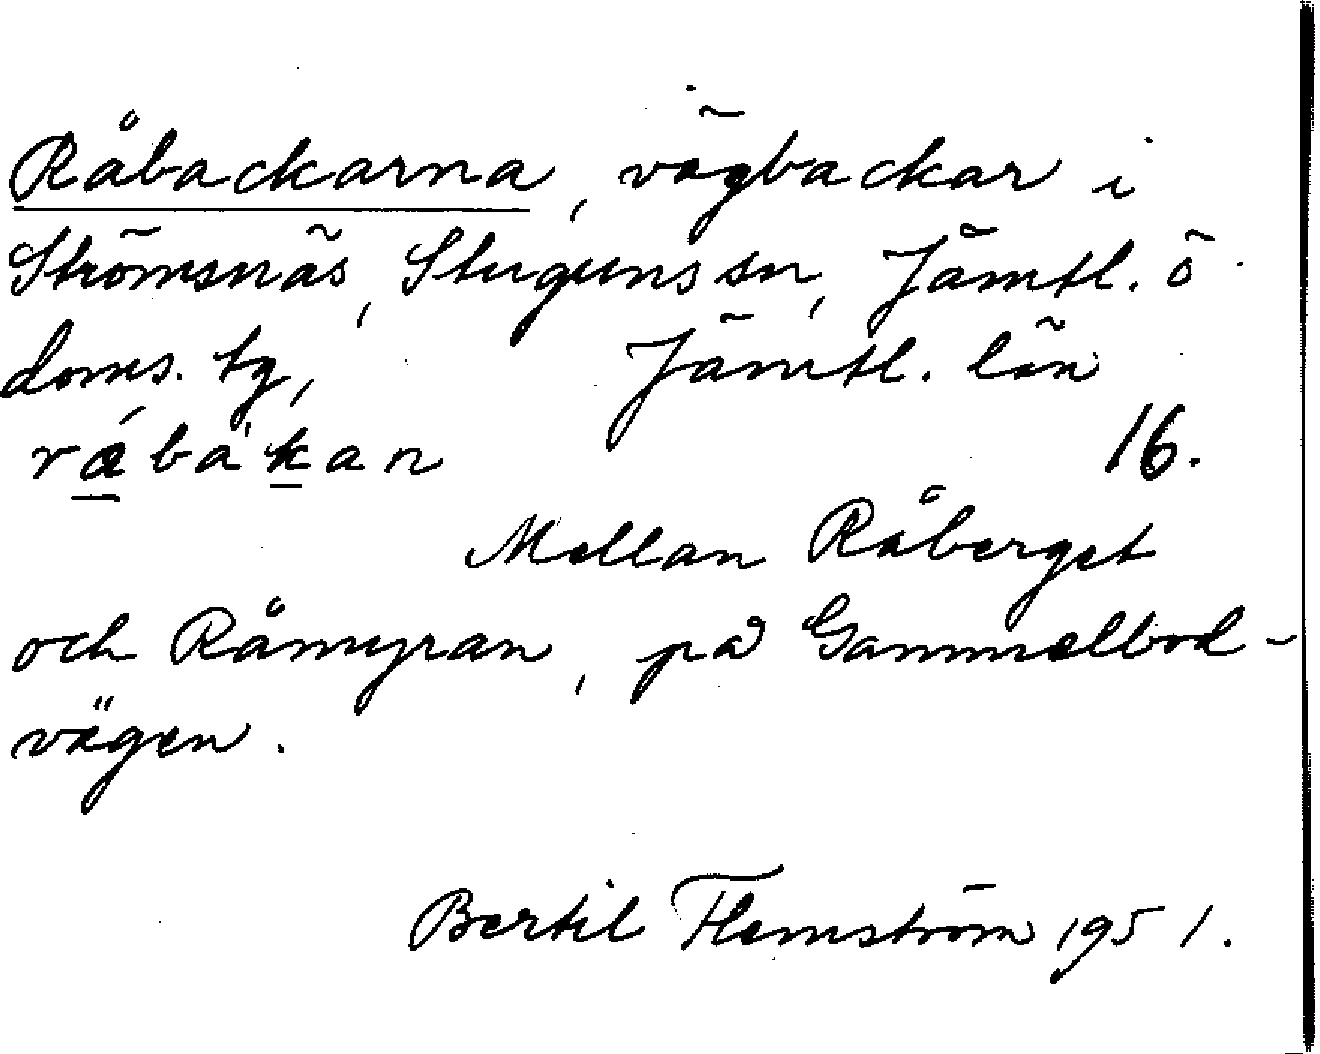 Råbackarna, vägbackar i
Strömsnäs, Stuguns sn, Jämtl. ö
doms. tg, Jämtl. län
rǽbàkan 16.
Mellan Råberget
och Råmyran, på Gammelbod-
vägen.
Bertil Flemström 1951.